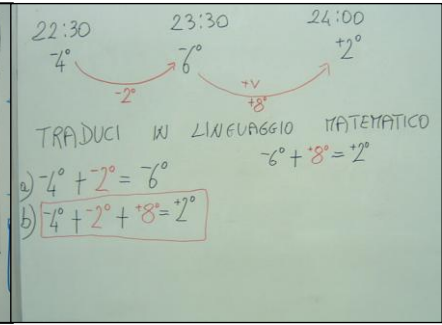 22:30 23:30 24:00
-4° -6° +2°
-2° +V
+8°
TRADUCI IN LINGUAGGIO MATEMATICO
-6° + +8° = +2°
a) -4° + -2° = -6°
b) -4° + -2° + +8° = +2°